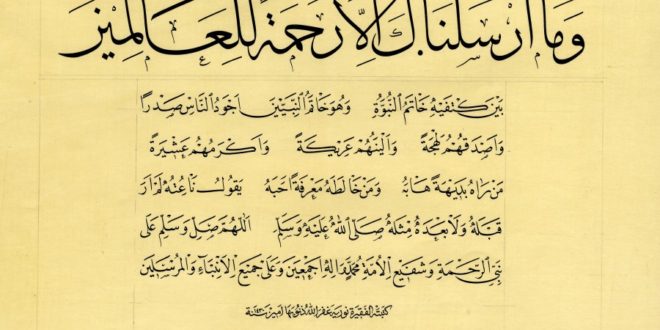 وَمَا أَرْسَلْنَاكَ إِلَّا رَحْمَةً لِلْعَالَمِينَ
بَيْنَ كَتِفَيْهِ خَاتَمُ النُّبُوَّةِ وَهُوَ خَاتَمُ النَّبِيِّينَ أَجْوَدُ النَّاسِ صَدْرًا
وَأَصْدَقُهُمْ لَهْجَةً وَأَلْيَنُهُمْ عَرِيكَةً وَأَكْرَمُهُمْ عَشِيرَةً
مَنْ رَآهُ بَدِيهَةً هَابَهُ وَمَنْ خَالَطَهُ مَعْرِفَةً أَحَبَّهُ يَقُولُ نَاعِتُهُ لَمْ أَرَ
قَبْلَهُ وَلَا بَعْدَهُ مِثْلَهُ صَلَّى اللهُ عَلَيْهِ وَسَلَّمَ اَللّٰهُمَّ صَلِّ وَسَلِّمْ عَلَى
نَبِيِّ الرَّحْمَةِ وَشَفِيعِ الْأُمَّةِ مُحَمَّدٍ وَآلِهِ أَجْمَعِينَ وَعَلَى جَمِيعِ الْأَنْبِيَاءِ وَالْمُرْسَلِينَ
كتبته الفقيرة نورية غفر الله ذنوبها آمين سنة